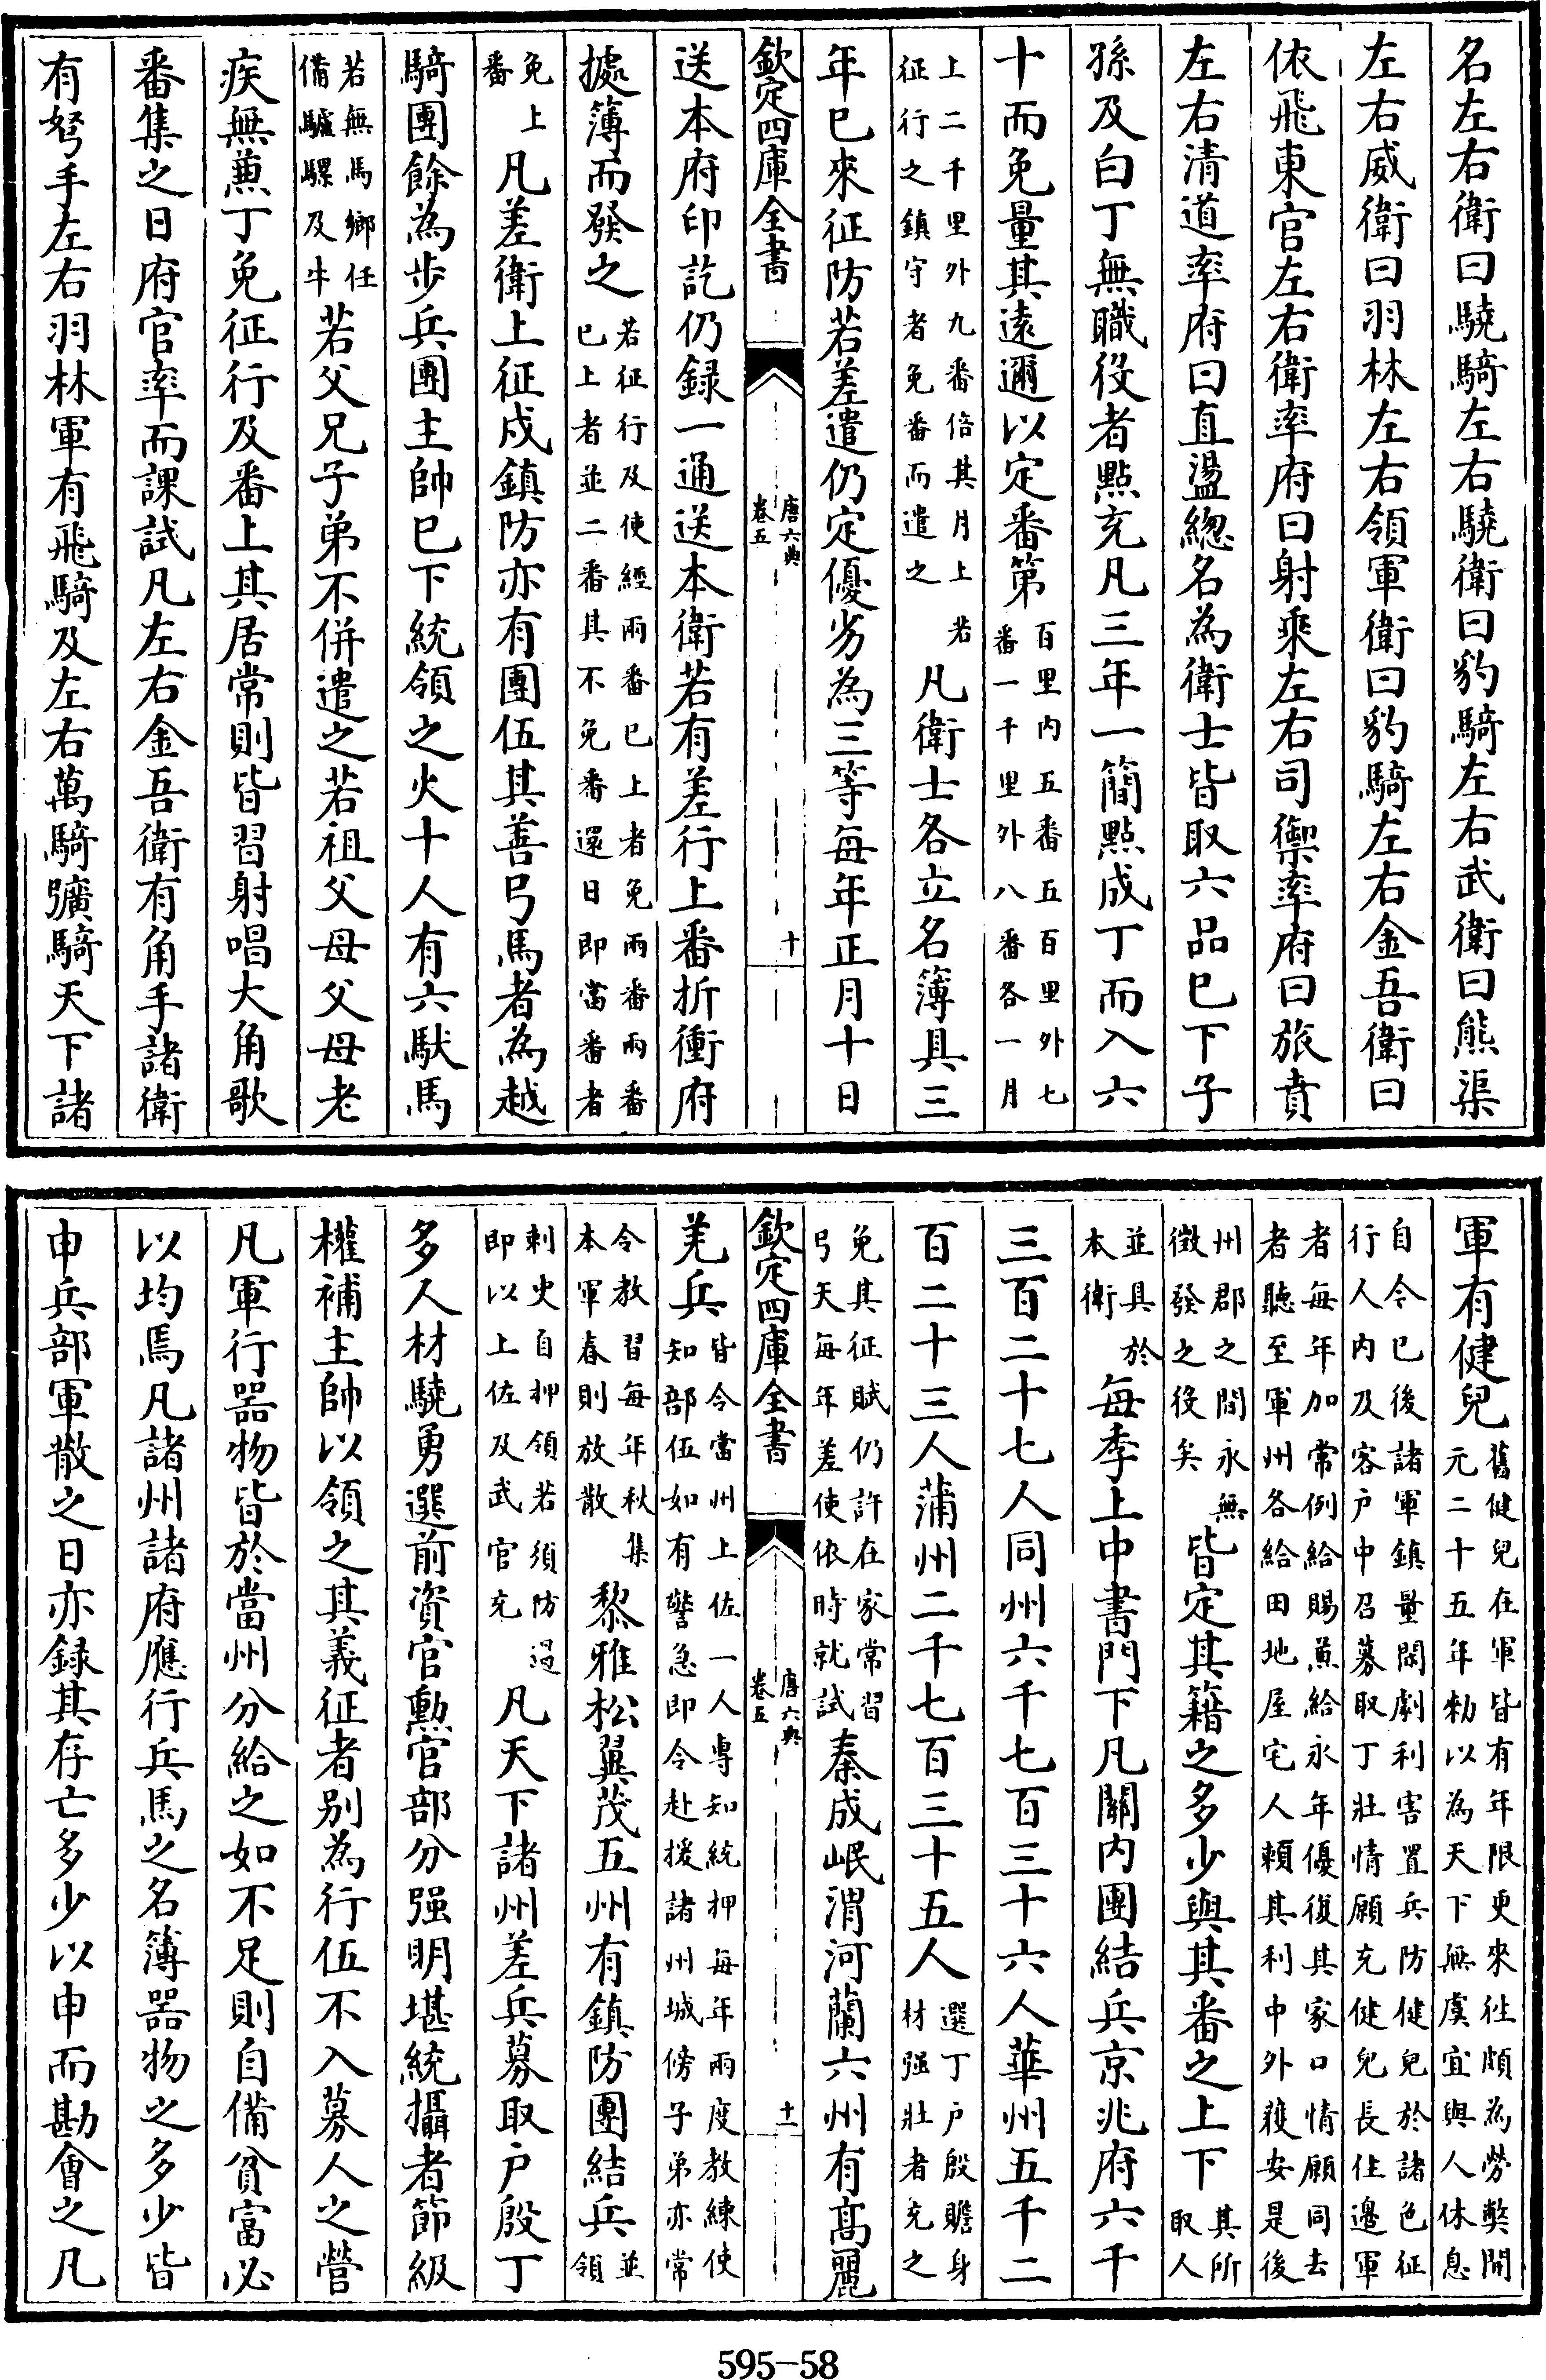 名左右衛曰驍騎左右驍衛曰豹騎左右武衛曰熊渠
左右威衛曰羽林左右領軍衛曰豹騎左右金吾衛曰
依飛東宫左右衛率府曰射乘左右司禦率府曰旅賁
左右清道率府曰直盪緫名為衛士皆取六品已下子
孫及白丁無職役者點充凡三年一簡點成丁而入六
十而免量其遠邇以定番第百里内五番五百里外七
番一千里外八番各一月
上二千里外九番倍其月上若
征行之鎮守者免番而遣之凡衛士各立名簿具三
年已來征防若差遣仍定優劣為三等每年正月十日
欽定四庫全書
唐六典
卷五
十
送本府印訖仍録一通送本衛若有差行上番折衝府
據簿而發之若征行及使經兩番已上者免兩番兩番
已上者並二番其不免番還日即當番者
免上
番凡差衛上征戍鎮防亦有團伍其善弓馬者為越
騎團餘為步兵團主帥已下統領之火十人有六馱馬
若無馬鄉任
備驢騾及牛若父兄子弟不併遣之若祖父母父母老
疾無兼丁免征行及番上其居常則皆習射唱大角歌
番集之日府官率而課試凡左右金吾衛有角手諸衛
有弩手左右羽林軍有飛騎及左右萬騎彍騎天下諸
軍有健兒舊健兒在軍皆有年限更來往頗為勞弊開
元二十五年勅以為天下無虞宜與人休息
自今已後諸軍鎮量閑劇利害置兵防健兒於諸色征
行人内及客户中召募取丁壯情願充健兒長住邊軍
者每年加常例給賜兼給永年優復其家口情願同去
者聽至軍州各給田地屋宅人賴其利中外獲安是後
州郡之間永無
徵發之役矣皆定其籍之多少與其番之上下其所
取人
並具於
本衛每季上中書門下凡關内團結兵京兆府六千
三百二十七人同州六千七百三十六人華州五千二
百二十三人蒲州二千七百三十五人選丁户殷贍身
材强壯者充之
免其征賦仍許在家常習
弓矢每年差使依時就試秦成岷渭河蘭六州有髙麗
欽定四庫全書
唐六典
卷五
十一
羌兵皆令當州上佐一人專知統押每年兩度教練使
知部伍如有警急即令赴援諸州城傍子弟亦常
令教習每年秋集
本軍春則放散黎雅松翼茂五州有鎮防團結兵並
領
刺史自押領若須防遏
即以上佐及武官充凡天下諸州差兵募取户殷丁
多人材驍勇選前資官勲官部分强明堪統攝者節級
權補主帥以領之其義征者别為行伍不入募人之營
凡軍行器物皆於當州分給之如不足則自備貧富必
以均焉凡諸州諸府應行兵馬之名簿器物之多少皆
申兵部軍散之日亦録其存亡多少以申而勘會之凡
595-58